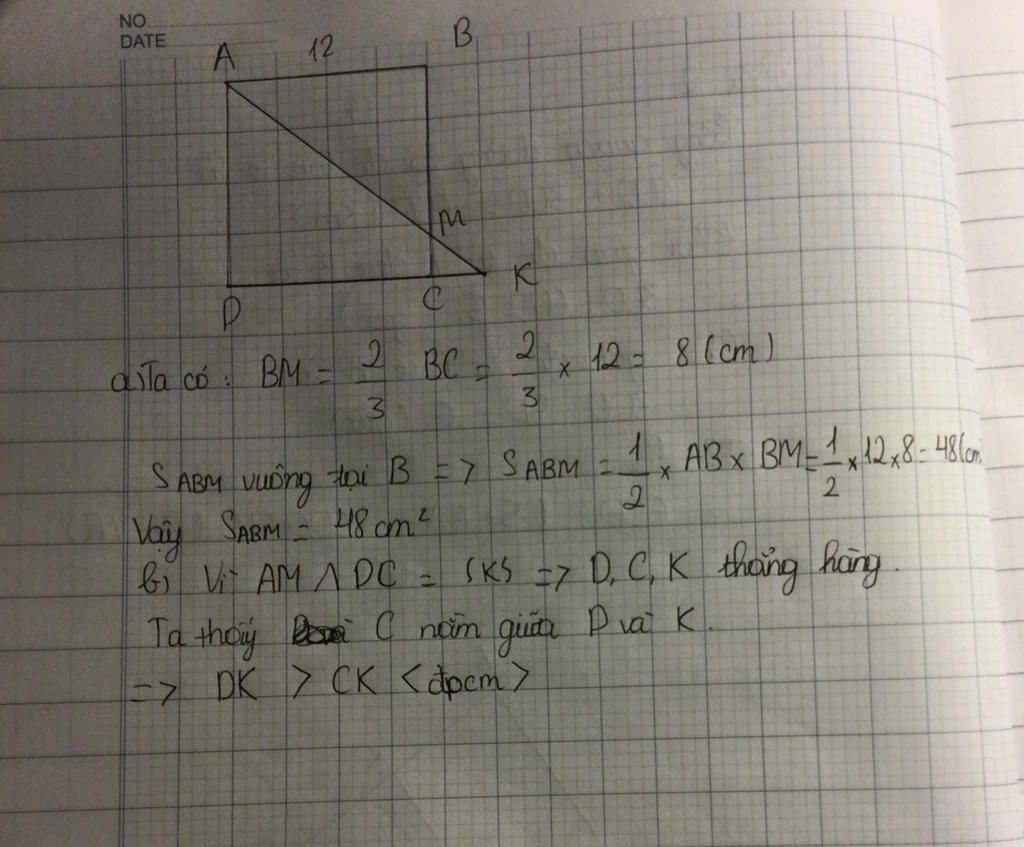 NO
DATE
A 12 B
M
K
D C
a) Ta có: BM = 2/3 BC = 2/3 × 12 = 8 (cm)
SABM vuông tại B => SABM = 1/2 × AB × BM = 1/2 × 12 × 8 = 48 (cm
Vậy SABM = 48 cm²
b) Vì AM ∧ DC = {K} => D, C, K thẳng hàng.
Ta thấy C nằm giữa D và K.
=> DK > CK <đpcm>